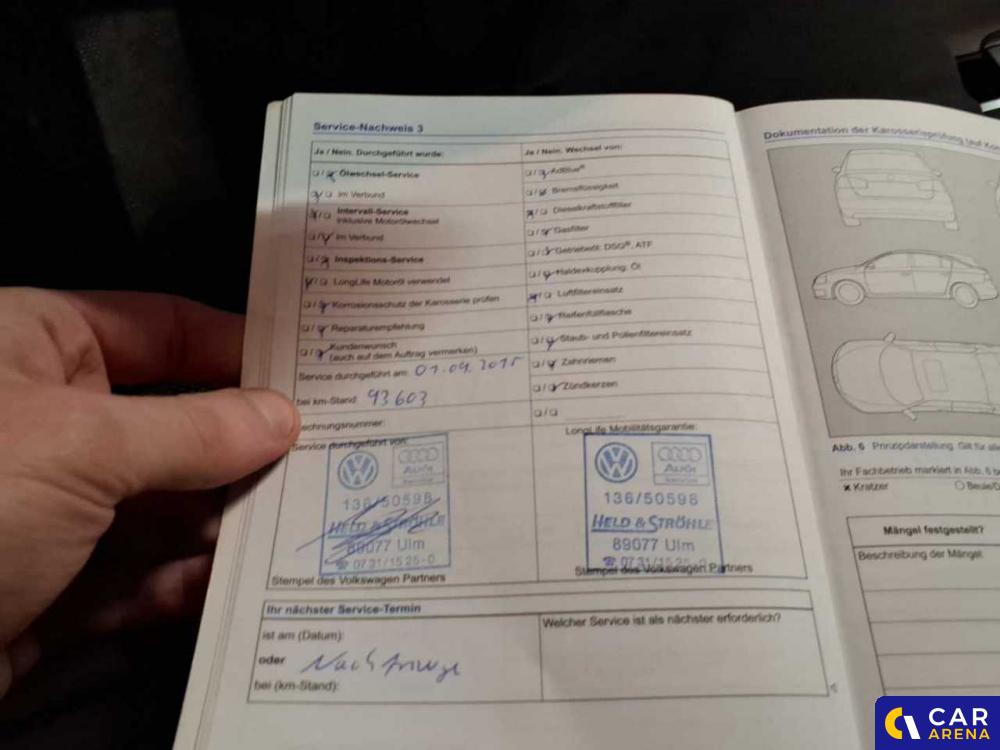 Service-Nachweis 3
Ja / Nein. Durchgeführt wurde:
Ölwechsel-Service
im Verbund
Intervall-Service
inklusive Motorölwechsel
im Verbund
Inspektions-Service
LongLife Motoröl verwendet
Korrosionsschutz der Karosserie prüfen
Reparaturempfehlung
Kundenwunsch
(auch auf dem Auftrag vermerken)
Service durchgeführt am: 01.09.2015
bei km-Stand: 93603
echnungsnummer:
Service durchgeführt von:
Audi
Service
136/50598
HELD & STRÖHLE
89077 Ulm
☎ 0731/1525-0
Stempel des Volkswagen Partners
Ja / Nein. Wechsel von:
AdBlue®
Bremsflüssigkeit
Dieselkraftstofffilter
Gasfilter
Getriebeöl: DSG®, ATF
Haldexkupplung: Öl
Luftfiltereinsatz
Reifenfüllflasche
Staub- und Pollenfiltereinsatz
Zahnriemen
Zündkerzen
LongLife Mobilitätsgarantie:
Audi
Service
136/50598
HELD & STRÖHLE
89077 Ulm
☎ 0731/1525-0
Stempel des Volkswagen Partners
Ihr nächster Service-Termin
ist am (Datum):
oder Nach Anzeige
bei (km-Stand):
Welcher Service ist als nächster erforderlich?
Dokumentation der Karosserieprüfung (auf
Abb. 6 Prinzipdarstellung. Gilt für
Ihr Fachbetrieb markiert in Abb. 6
Kratzer
Mängel festgestellt?
Beschreibung der Mängel
CAR
ARENA